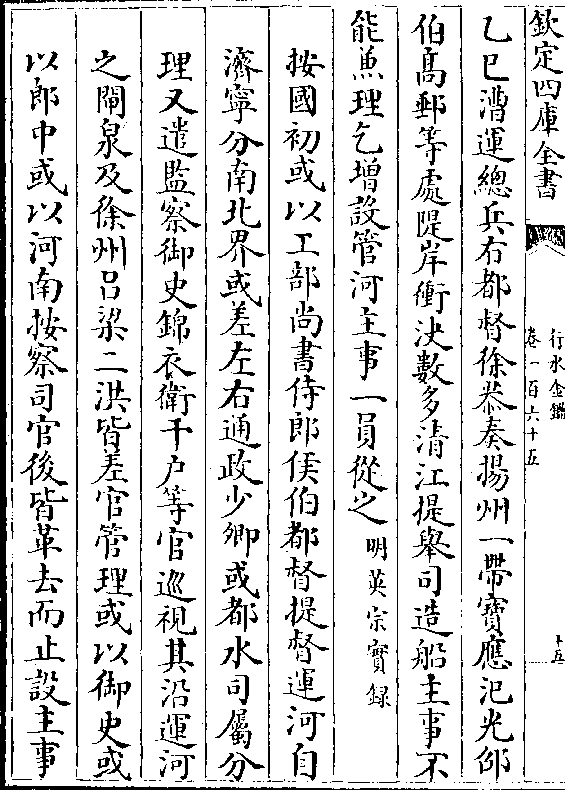 欽定四庫全書
行水金鑑
卷一百六十五
十五
乙巳漕運總兵右都督徐恭奏揚州一帶寶應汜光邵
伯髙郵等處隄岸衝決數多清江提舉司造船主事不
能兼理乞增設管河主事一員從之明英宗實録
按國初或以工部尚書侍郎侯伯都督提督運河自
濟寧分南北界或差左右通政少卿或都水司屬分
理又遣監察御史錦衣衛千户等官巡視其沿運河
之閘泉及徐州吕梁二洪皆差官管理或以御史或
以郎中或以河南按察司官後皆革去而止設主事